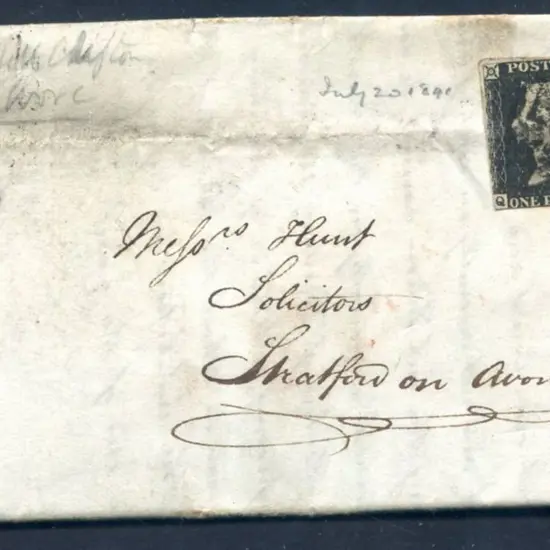 Clifton
July 20 1841
POST
Q ONE P
Messrs Hunt
Solicitors
Stratford on Avon